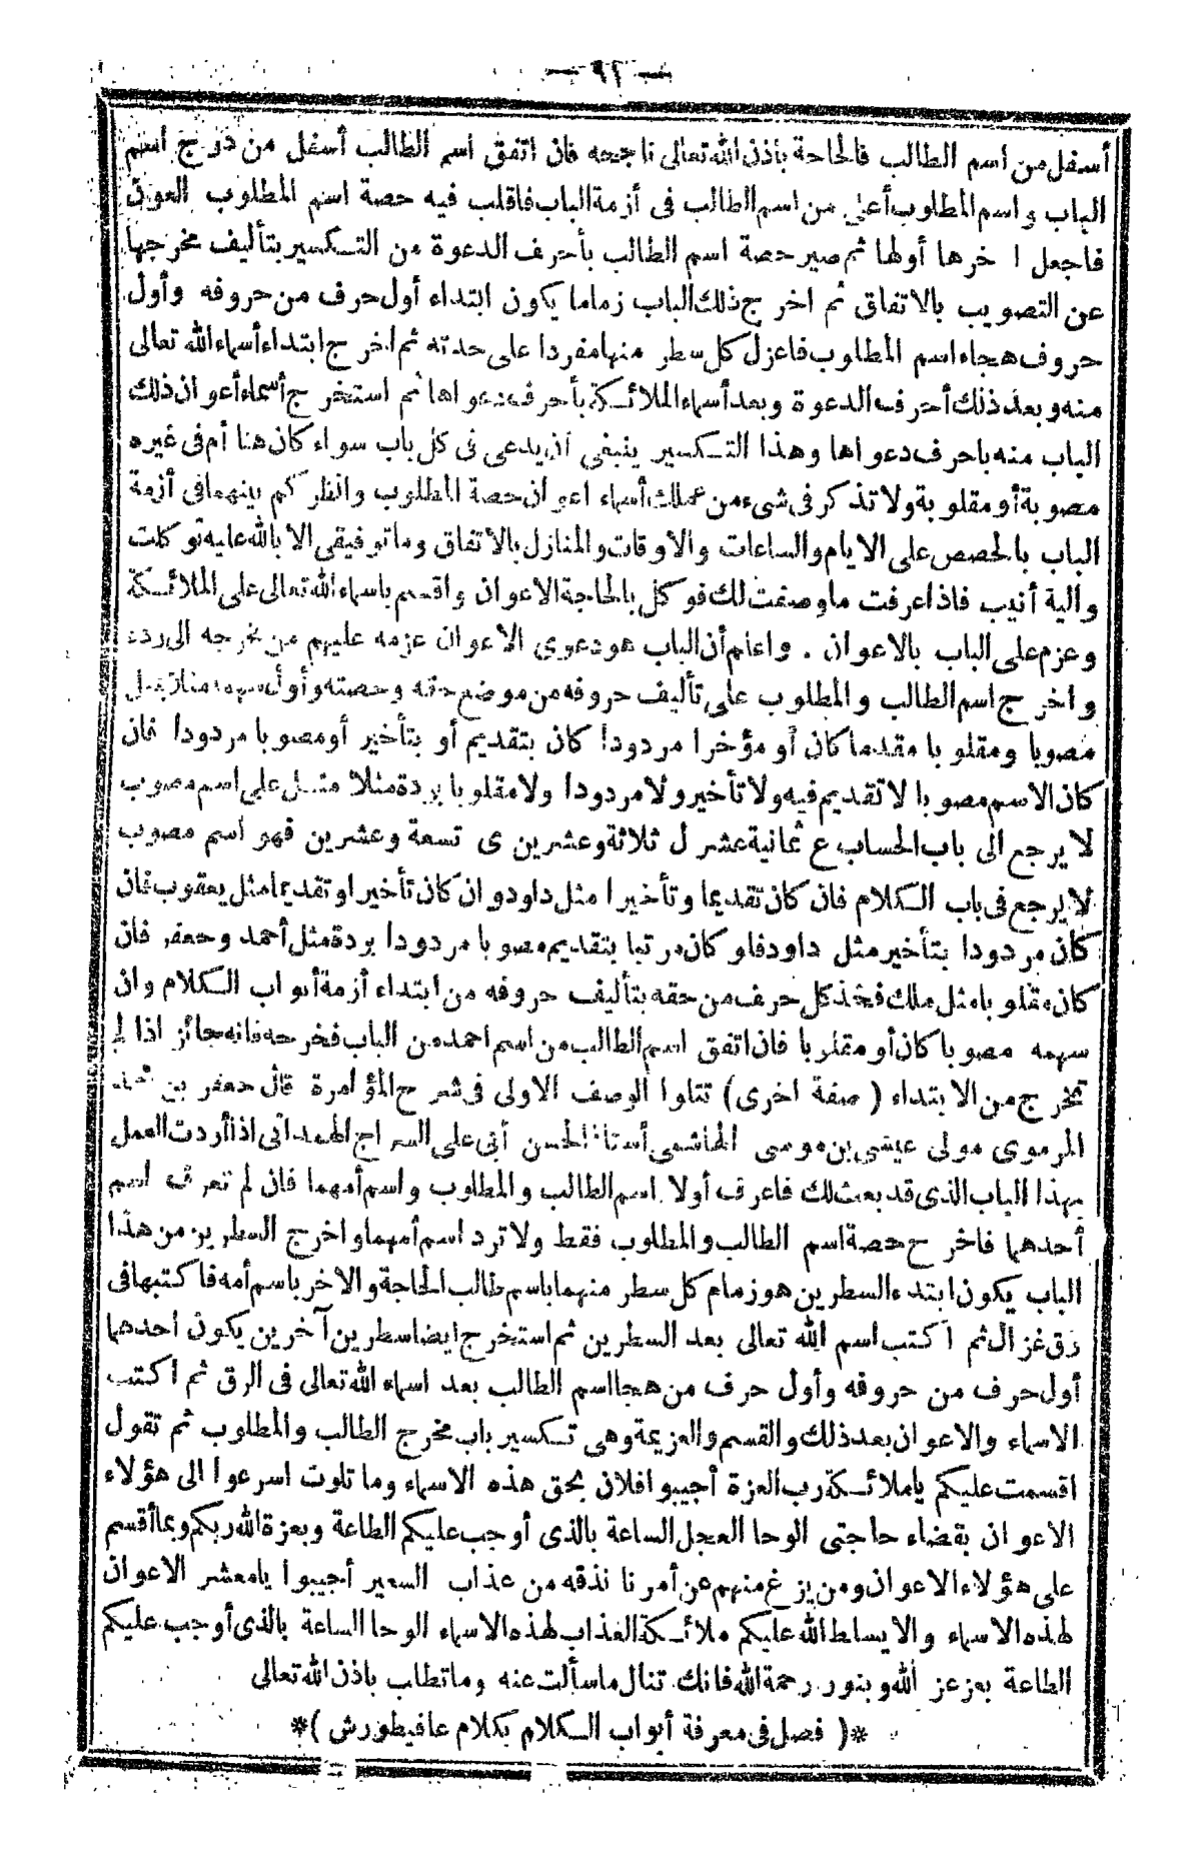 — ٩٢ —
أسفل من اسم الطالب فالحاجة باذن الله تعالى ناجحه فان اتفق اسم الطالب أسفل من درج اسم
الباب واسم المطلوب أعلى من اسم الطالب فى أزمة الباب فاقلب فيه حصة اسم المطلوب العون
فاجعل اخرها أولها ثم صير حصة اسم الطالب بأحرف الدعوة من التكسير بتأليف مخرجها
عن التصويب بالاتفاق ثم اخرج ذلك الباب زماما يكون ابتداء أول حرف من حروفه وأول
حروف هجاء اسم المطلوب فاعزل كل سطر منها مفردا على حدته ثم اخرج ابتداء أسماء الله تعالى
منه وبعد ذلك أحرف الدعوة وبعد أسماء الملائكة بأحرف دعواها ثم استخرج أسماء أعوان ذلك
الباب منه باحرف دعواها وهذا التكسير ينبغى أن يدعى فى كل باب سواء كان هنا أم فى غيره
مصوبة أو مقلوبة ولا تذكر فى شىء من عملك أسماء اعوان حصة المطلوب وانظر كم بينهما فى أزمة
الباب بالحصص على الايام والساعات والاوقات والمنازل بالاتفاق وما توفيقى الا بالله عليه توكلت
والية أنيب فاذا عرفت ما وصفت لك فوكل بالحاجة الاعوان واقسم باسماء الله تعالى على الملائكة
وعزم على الباب بالاعوان . واعلم أن الباب هو دعوى الاعوان عزمه عليهم من مخرجه الى رده
واخرج اسم الطالب والمطلوب على تأليف حروفه من موضع حقه وحصته وأول سهمه
مصوبا ومقلوبا مقدما كان أو مؤخرا مردودا كان بتقديم أو بتأخير أو مصوبا مردودا فان
كان الاسم مصوبا لا تقديم فيه ولا تأخير ولا مردودا ولا مقلوبا برده مثلا مثل على اسم مصوب
لا يرجع الى باب الحساب ع ثمانية عشر ل ثلاثة وعشرين ى تسعة وعشرين فهو اسم مصوب
لا يرجع فى باب الكلام فان كان تقديما وتأخيرا مثل داود وان كان تأخيرا وتقديما مثل يعقوب فان
كان مردودا بتأخير مثل داود فلو كان مرتبا بتقديم مصوبا مردودا بردة مثل أحمد وجعفر فان
كان مقلوبا مثل ملك فخذ كل حرف من حقه بتأليف حروفه من ابتداء أزمة أبواب الكلام وان
سهمه مصوبا كان أو مقلوبا فان اتفق اسم الطالب من اسم احمد من الباب فخرجه فانه جائز اذا لم
تخرج من الابتداء ( صفة اخرى ) تتلوا الوصف الاولى فى شرح المؤامرة قال جعفر بن
المرموى مولى عيسى بن موسى الهاشمى أستاذ الحسن أبى على السراج الهمدانى اذا أردت العمل
بهذا الباب الذى قد بعث لك فاعرف أولا اسم الطالب والمطلوب واسم أمهما فان لم تعرف اسم
أحدهما فاخرج حصة اسم الطالب والمطلوب فقط ولا ترد اسم أمهما واخرج السطرين من هذا
الباب يكون ابتدء السطرين هو زمام كل سطر منهما باسم طالب الحاجة والاخر باسم أمه فاكتبها فى
رق غزال ثم اكتب اسم الله تعالى بعد السطرين ثم استخرج ايضا سطرين آخرين يكون احدهما
أول حرف من حروفه وأول حرف من هجا اسم الطالب بعد اسماء الله تعالى فى الرق ثم اكتب
الاسماء والاعوان بعد ذلك والقسم والعزيمة وهى تكسير باب مخرج الطالب والمطلوب ثم تقول
اقسمت عليكم ياملائكة رب العزة أجيبوا فلان بحق هذه الاسماء وما تلوت اسرعوا الى هؤلاء
الاعوان بقضاء حاجتى الوحا العجل الساعة بالذى أوجب عليكم الطاعة وبعزة الله ربكم وبما أقسم
على هؤلاء الاعوان ومن يزغ منهم عن أمرنا نذقه من عذاب السعير أجيبوا يامعشر الاعوان
لهذه الاسماء والا يسلط الله عليكم ملائكة العذاب لهذه الاسماء الوحا الساعة بالذى أوجب عليكم
الطاعة بعز عز الله وبنور رحمة الله فانك تنال ما سألت عنه وما تطلب باذن الله تعالى
*( فصل فى معرفة أبواب الكلام بكلام عافيطورش )*